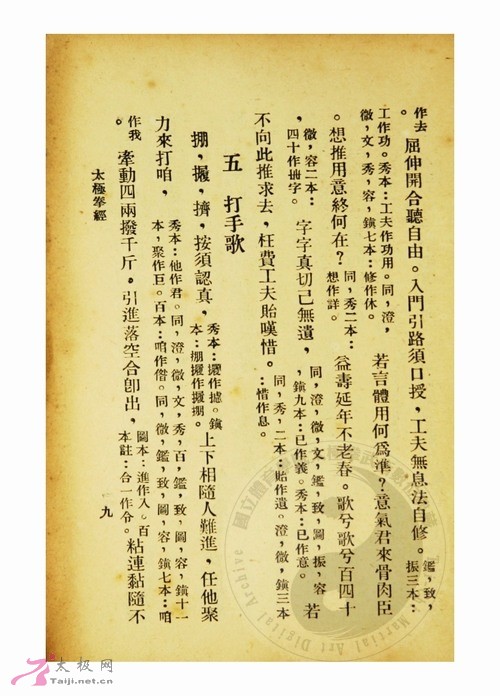 作去。屈伸開合聽自由。入門引路須口授，工夫無息法自修。鑑，致，振三本：
工作功。秀本：工夫作功用。同，澄，微，文，秀，容，鎮七本：修作休。若言體用何爲準？意氣君來骨肉臣
。想推用意終何在？同，秀二本：想作詳。益壽延年不老春。歌兮歌兮百四十
微，容二本：，四十作字。字字真切己無遺，同，澄，微，文，鑑，致，圖，振，容，鎮九本：已作義。秀本：已作意。若
不向此推求去，枉費工夫貽嘆惜。同，秀，二本：貽作遺。澄，微，鎮三本：惜作息。
五 打手歌
掤，攦，擠，按須認真，秀本：攦作。鎮本：掤攦作攦掤。上下相隨人難進，任他聚
力來打咱，秀本：他作君。同，澄，微，文，秀，百，鑑，致，圖，容，鎮十一本，聚作巨。百本：咱作偺。同，微，鑑，致，圖，容，鎮七本：咱
作我。牽動四兩撥千斤。引進落空合卽出，圖本：進作入。百本註：合一作令。粘連黏隨不
太極拳經
九
Martial Art Digital Archive
太极网
Taiji.net.cn